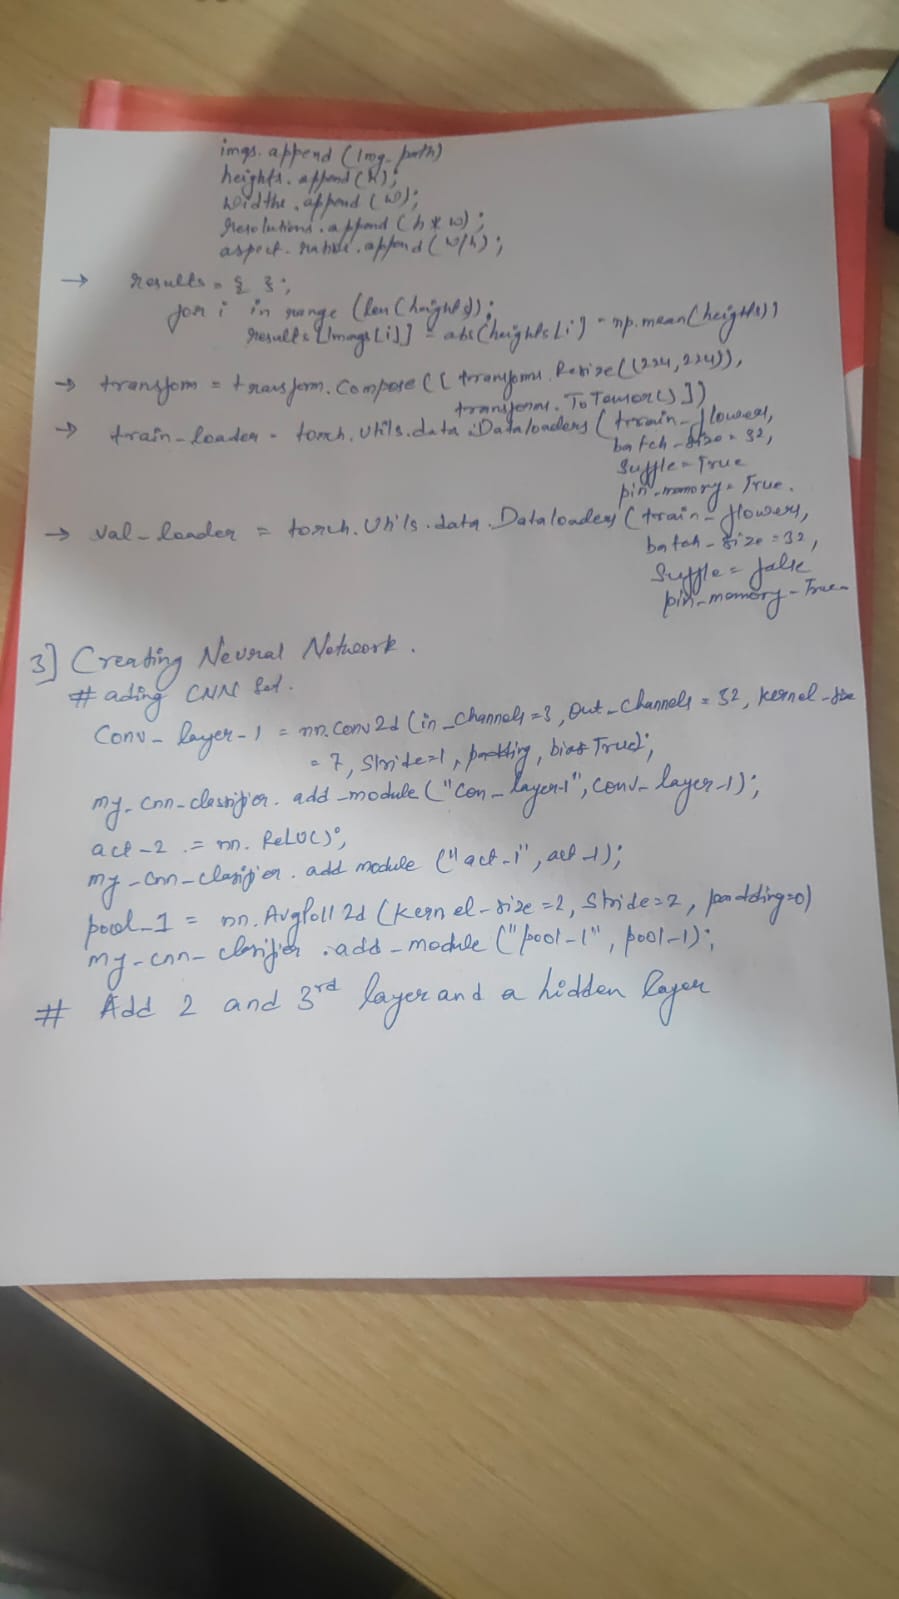 imgs.append (Img_path)
heights.append (h);
widths.append (w);
resolutions.append (h * w);
aspect_ratios.append (w/h);
→ results = { };
for i in range (len (heights)):
results [Imags [i]] = abs (heights [i] - np.mean (heights))
→ transform = transform.Compose ([ transforms.Resize ((224,224)),
transforms.ToTensor() ])
→ train_loader = torch.utils.data.Dataloaders (train_flowers,
batch_size = 32,
Suffle = True
pin_memory = True.
→ val_loader = torch.Utils.data.Dataloaders (train_flowers,
batch_size = 32,
Suffle = false
pin_memory = True
3] Creating Neural Network.
# ading CNN
Conv_layer-1 = nn.Conv2d (in_channels = 3, out_channels = 32, kernel_size
= 7, Stride=1, padding, bias True);
my_cnn_classifier.add_module ("con_layer-1", conv_layer-1);
act-2 = nn.ReLU();
my_cnn_clasifier.add module ("act-1", act-1);
pool_1 = nn.AvgPoll2d (kernel-size = 2, Stride = 2, padding=0)
my_cnn_clasifier.add_module ("pool-1", pool-1);
# Add 2 and 3rd layer and a hidden layer